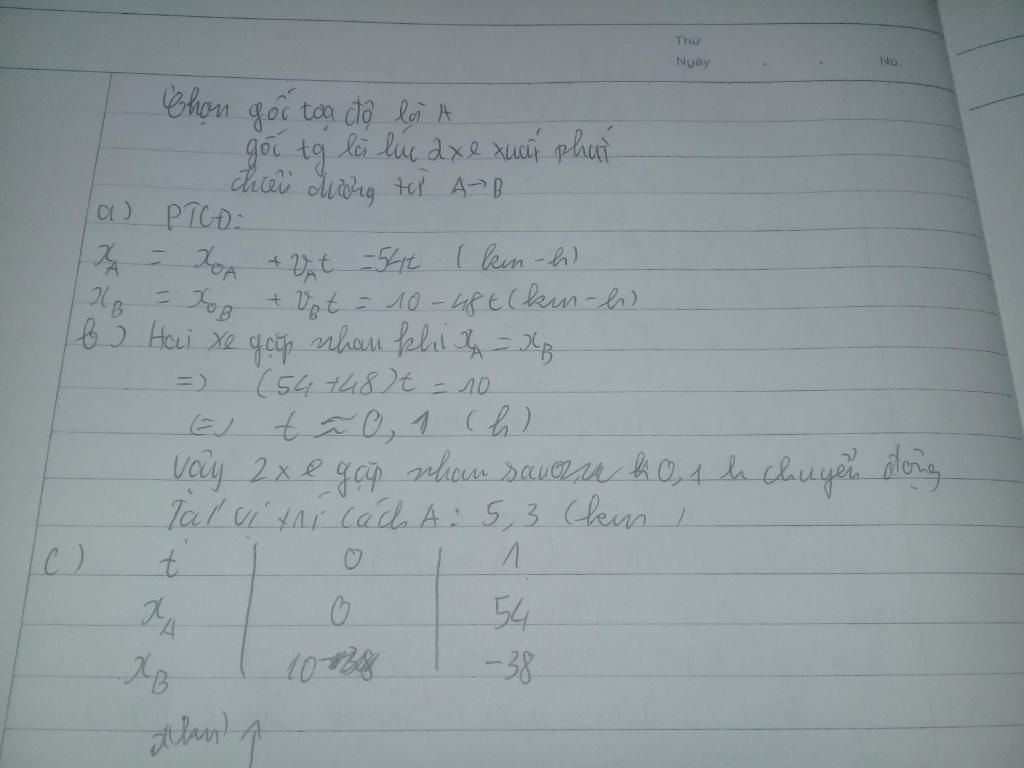 Thứ
Ngày . . No.
Chọn gốc toạ độ là A
gốc tg là lúc 2 xe xuất phát
chiều dương từ A→B
a) PTCĐ:
x_A = x_0A + v_A t = 54t (km-h)
x_B = x_0B + v_B t = 10 - 48t (km-h)
b) Hai xe gặp nhau khi x_A = x_B
=> (54+48)t = 10
(=) t ≈ 0,1 (h)
Vậy 2 xe gặp nhau sau 0,1 h chuyển động
Tại vị trí cách A: 5,3 (km)
c) t 0 1
x_A 0 54
x_B 10 -38
x(km)